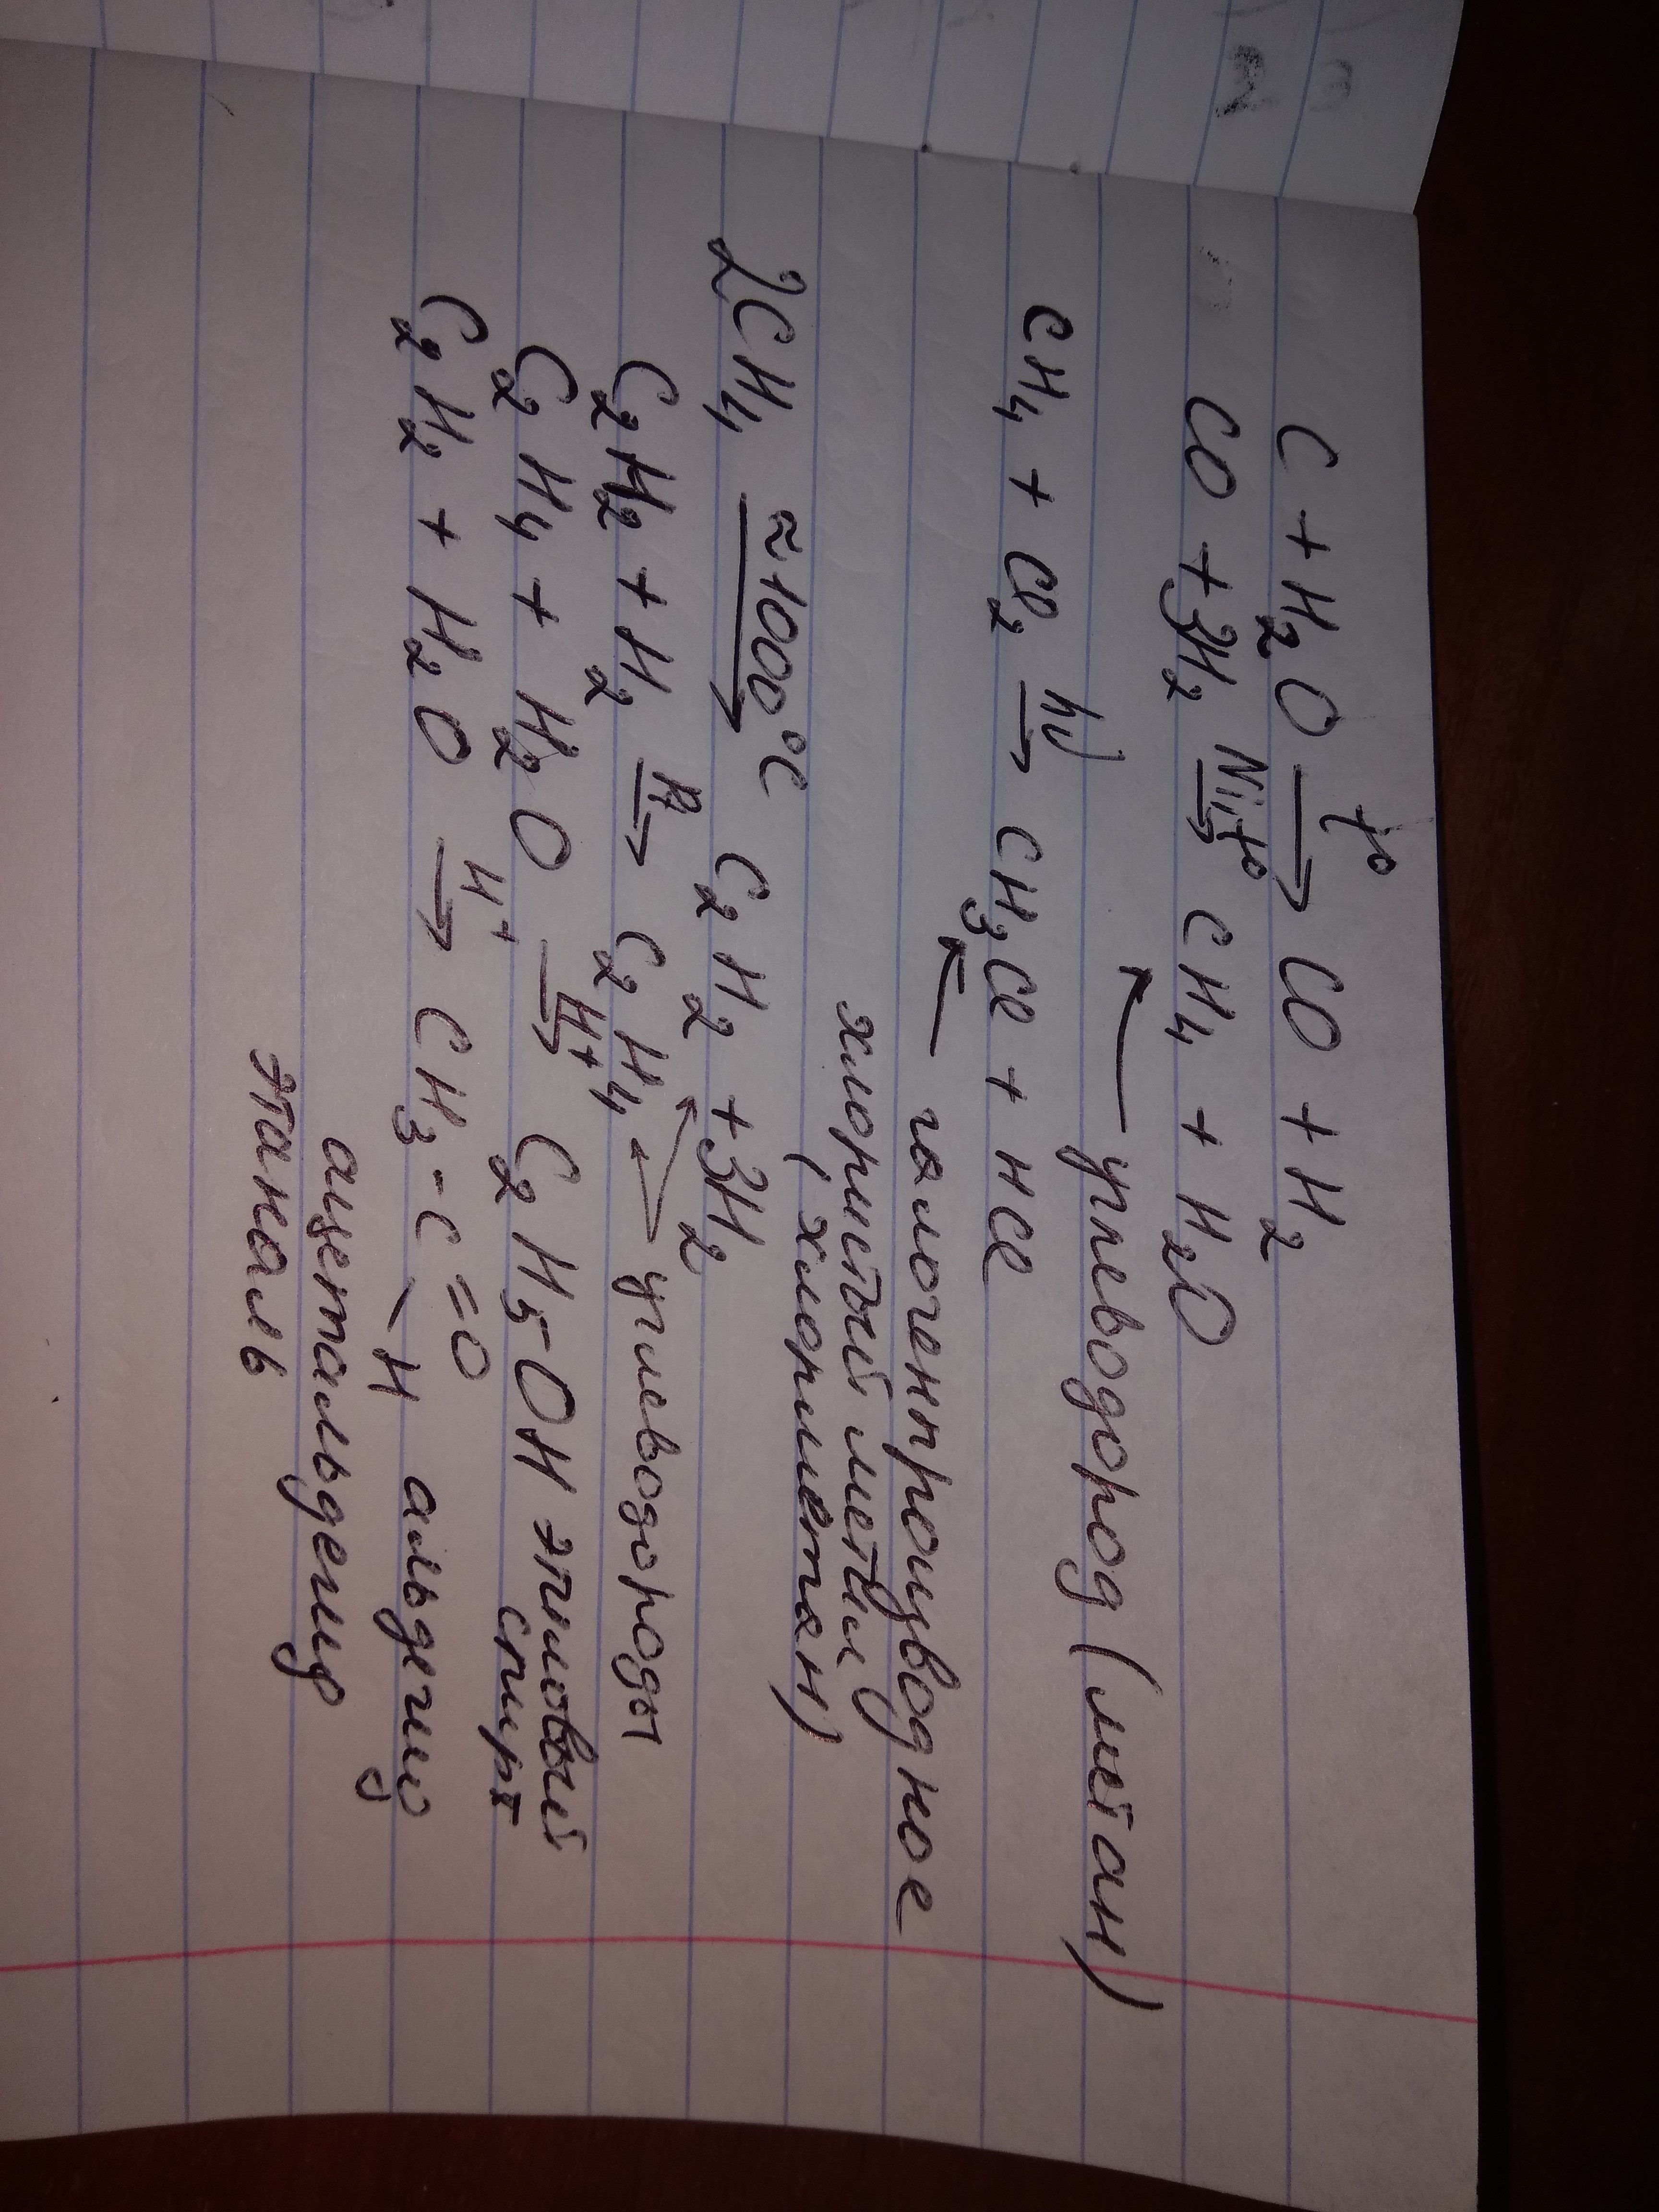 C + H₂O →t° CO + H₂
CO + 3H₂ →Ni,t° CH₄ + H₂O
углеводород (метан)
CH₄ + Cl₂ →hν CH₃Cl + HCl
галогенпроизводное
хлористый метил
(хлорметан)
2CH₄ →≈1000°C C₂H₂ + 3H₂
C₂H₂ + H₂ →Pt C₂H₄ ← углеводороды
C₂H₄ + H₂O →H⁺ C₂H₅-OH этиловый
спирт
C₂H₂ + H₂O →H⁺ CH₃-C=O
\H альдегид
ацетальдегид
этаналь